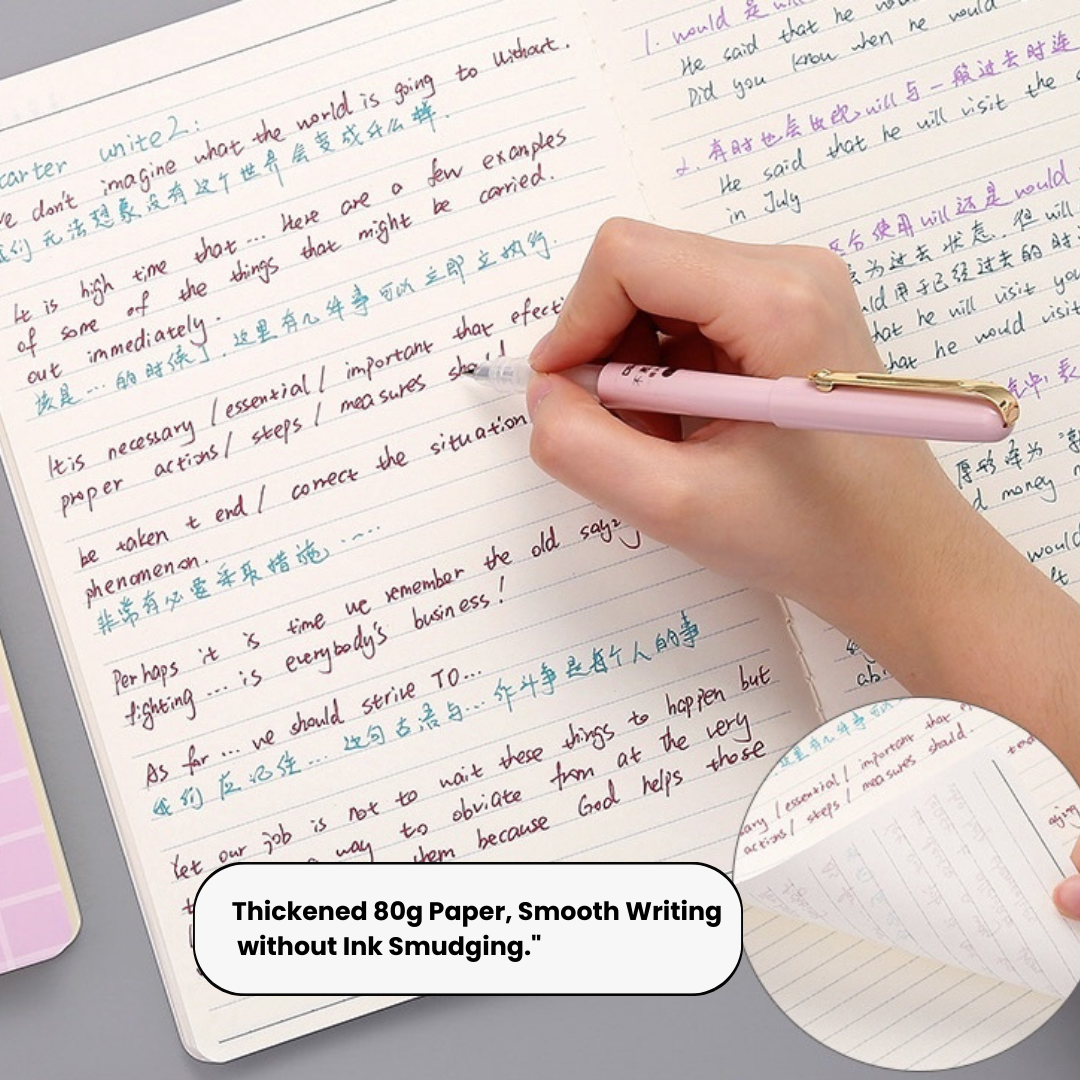 carter unite 2:
we don't imagine what the world is going to without.
我们无法想象没有这个世界会变成什么样.
It is high time that... Here are a few examples
of some of the things that might be carried.
out immediately. 这里有几件事可以立即立执行.
该是...的时候了.
It is necessary / essential / important that efecti
proper actions / steps / measures should
be taken t end / correct the situation
phenomenon.
非常有必要采取措施.....
Perhaps it is time we remember the old say
fighting ... is everybody's business!
As far ... we should strive TO...
我们应记住... 这句古语与... 作斗争是每个人的事
Yet our job is not to wait these things to happen but
way to obviate from at the very
them because God helps those
1. would 是 will
He said that he
Did you know when he would
2. 有时也会出现 will 与一般过去时连
He said that he will visit the
in July
区分使用 will 还是 would
为过去状态. 但 will
ld 用于已经过去的时
hat he will visit you
hat he would visit
厚
d money
would
Thickened 80g Paper, Smooth Writing
without Ink Smudging."
这里有几件事可以
sary / essential / important that
actions / steps / measures should.